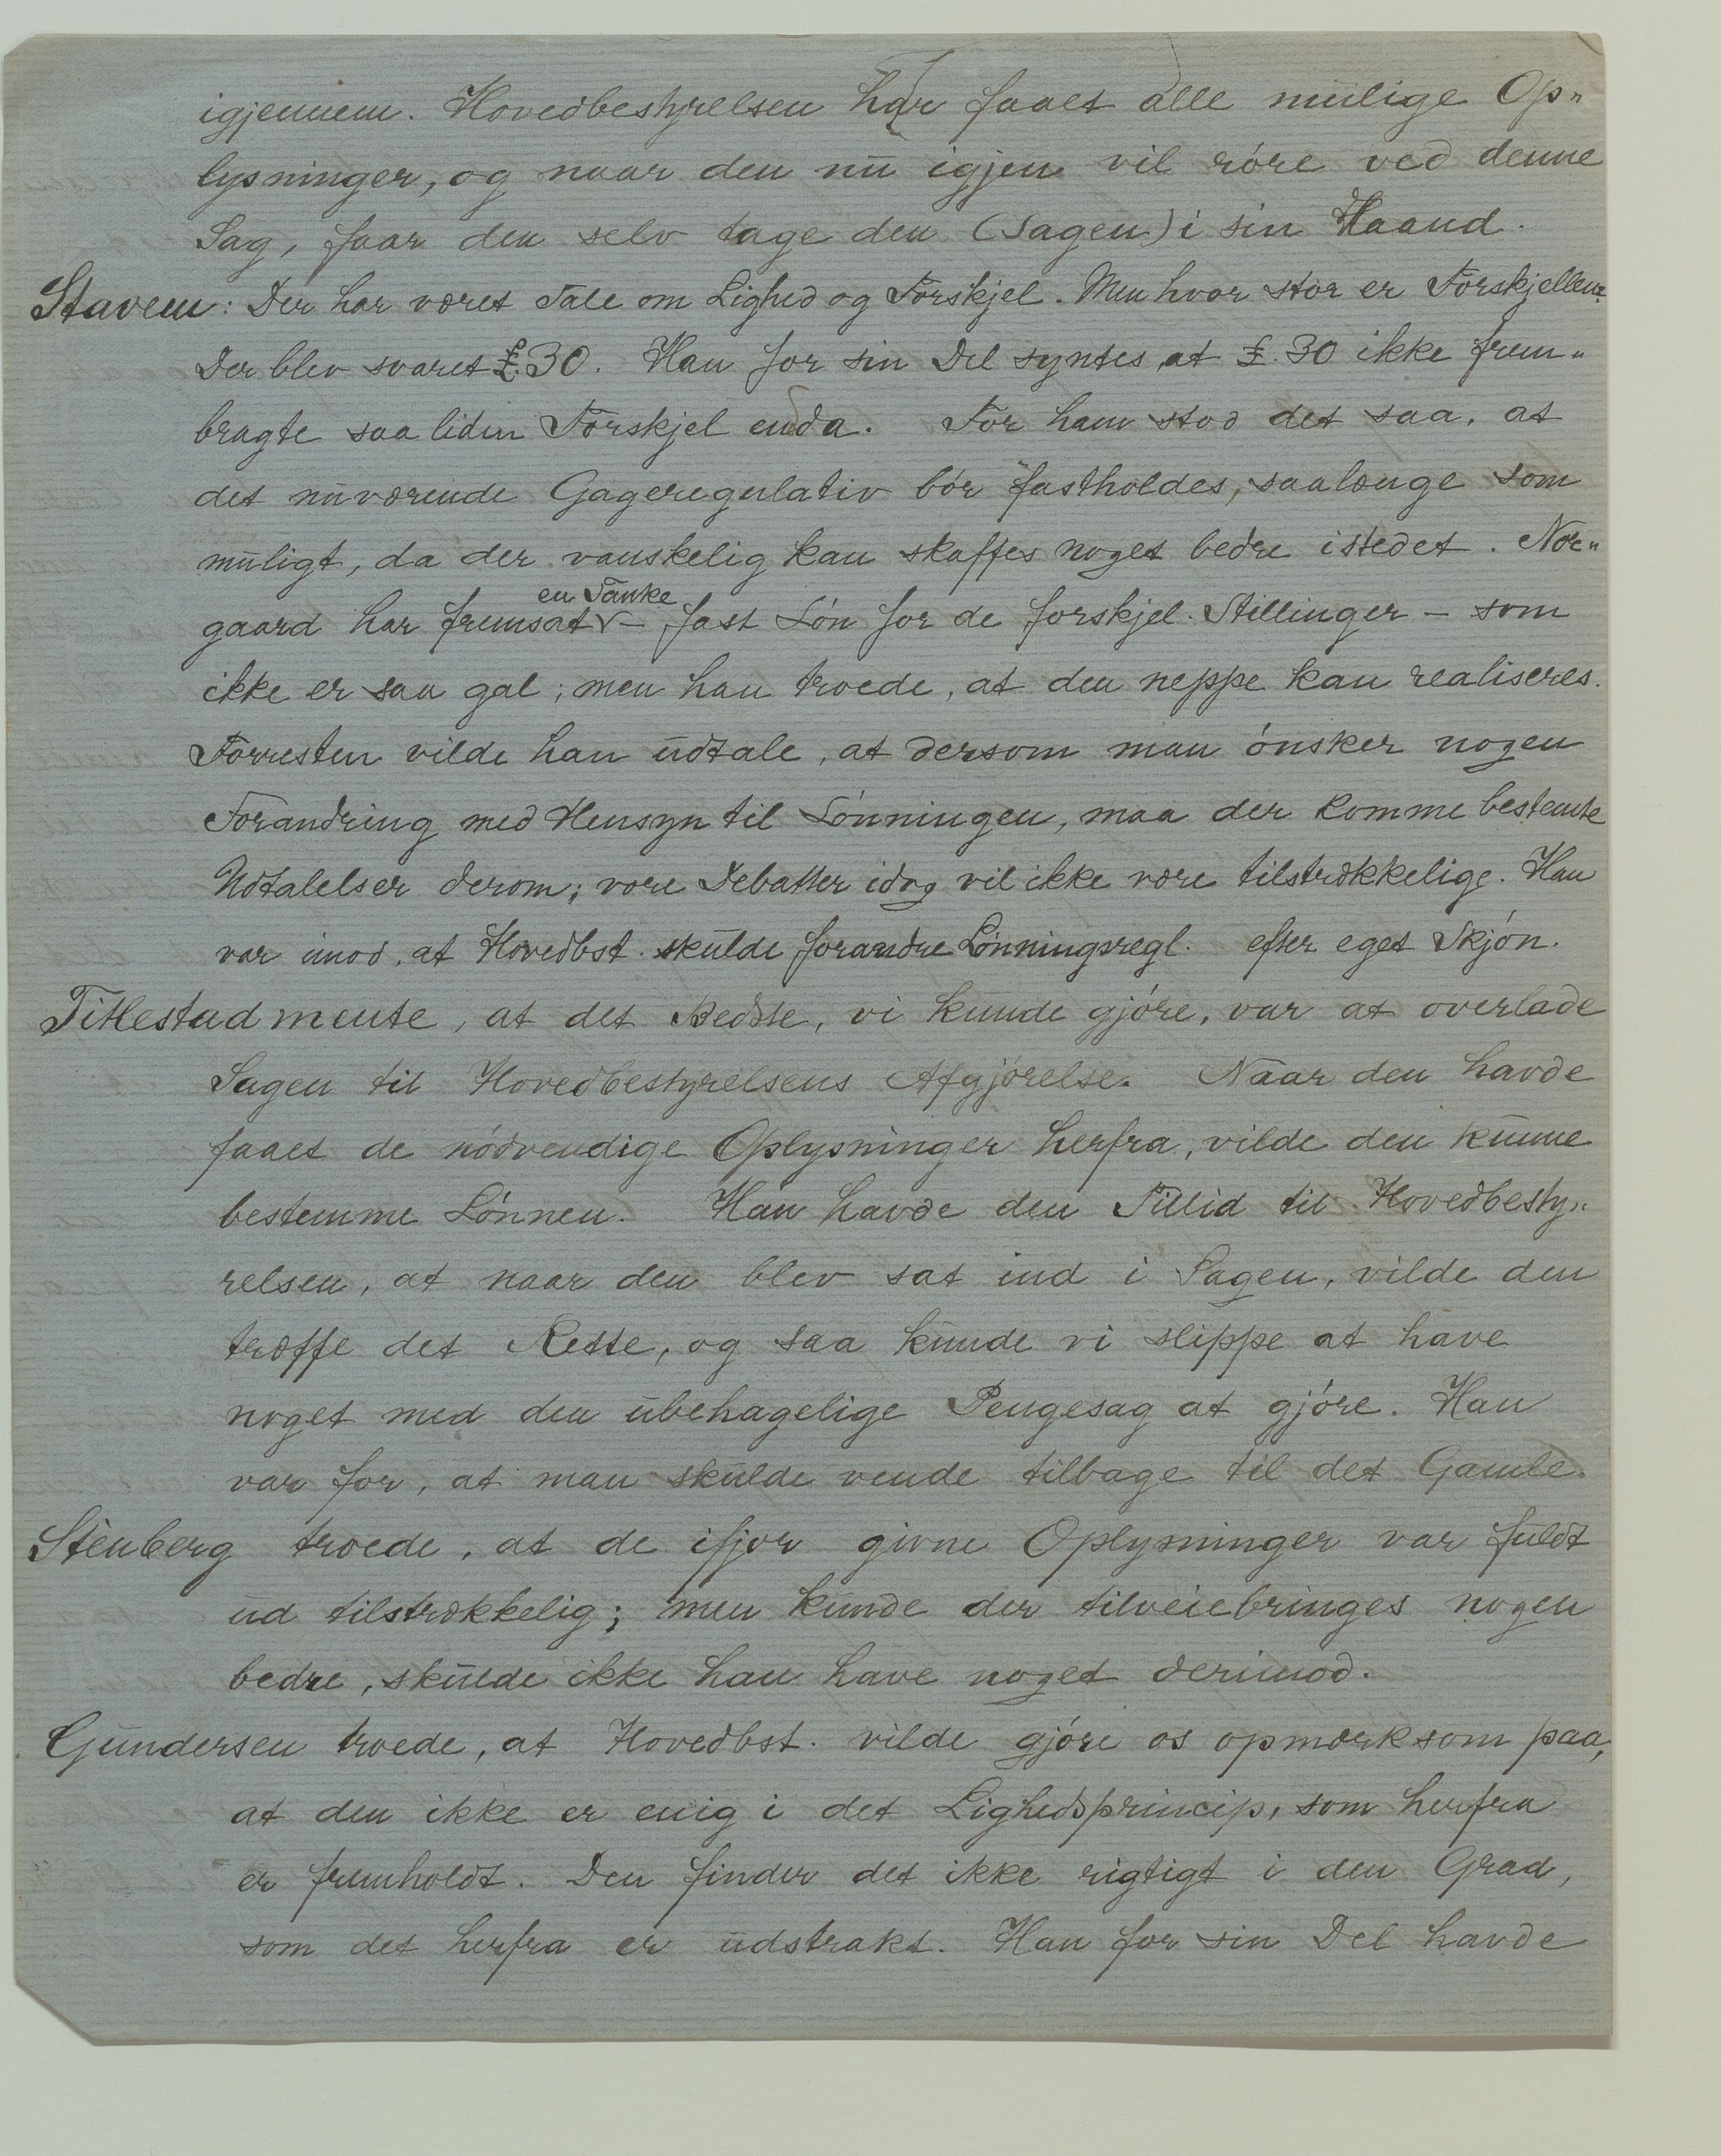 igjennem. Hovedbestyrelsen har faaet alle mulige Op„
lysninger, og naar den nu igjen vil róre ved denne
Sag, faar den selv tage den (Sagen) i sin Haand.
Stavem: Der har været Tale om Lighed og Forskjel. Men hvor stor er Forskjellen?
Der blev svaret £30. Han for sin Del syntes, at £.30 ikke frem„
bragte saa liden Forskjel enda. For ham stod det saa, at
det nuværende Gageregulativ bór fastholdes, saalænge som
muligt, da der vanskelig kan skaffes noget bedre istedet. Nor„
en Tanke
gaard har fremsat – fast Lón for de forskjel. Stillinger – som
ikke er saa gal; men han troede, at den neppe kan realiseres.
Forresten vilde han udtale, at dersom man ónsker nogen
Forandring med Hensyn til Lónningen, maa der komme bestemte
Udtalelser derom; vore Debatter idag vil ikke være tilstrækkelige. Han
var imod, at Hovedbst. skulde forandre Lónningsregl. efter eget Skjón.
Titlestad mente, at det Bedste, vi kunde gjóre, var at overlade
Sagen til Hovedbestyrelsens Afgjórelse. Naar den havde
faaet de nódvendige Oplysninger herfra, vilde den kunne
bestemme Lónnen. Han havde den Tillid til Hovedbesty„
relsen, at naar den blev sat ind i Sagen, vilde den
træffe det Rette, og saa kunde vi slippe at have
noget med den ubehagelige Pengesag at gjóre. Han
var for, at man skulde vende tilbage til det Gamle.
Stenberg troede, at de ifjor givne Oplysninger var fuldt
ud tilstrækkelig; men kunde der tilveiebringes nogen
bedre, skulde ikke han have noget derimod.
Gundersen troede, at Hovedbst. vilde gjóre os opmærksom paa,
at den ikke er enig i det Lighedsprincip, som herfra
er fremholdt. Den finder det ikke rigtigt i den Grad,
som det herfra er udstrakt. Han for sin Del havde